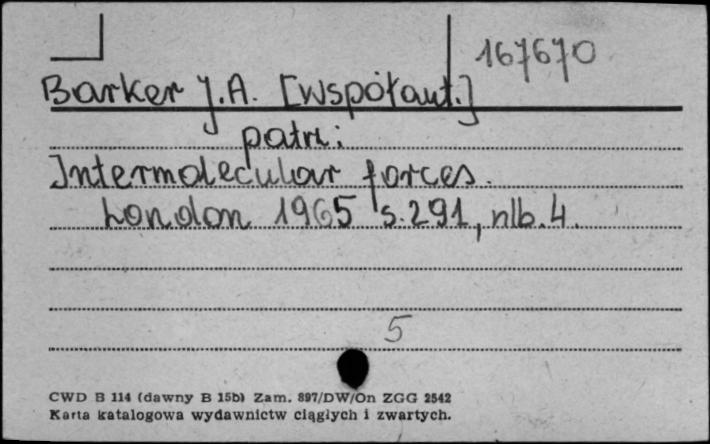 167670
Barker J.A. [Współaut.]
patrz:
Intermolecular forces.
London 1965 s.291, nlb.4.
5
CWD B 114 (dawny B 15b) Zam. 897/DW/On ZGG 2542
Karta katalogowa wydawnictw ciągłych i zwartych.